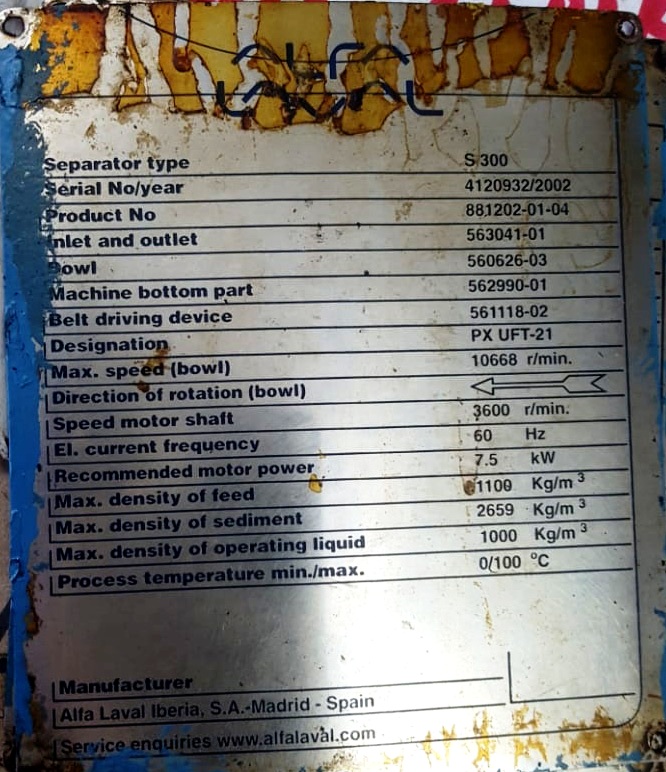 ALFA
LAVAL
Separator type S 300
Serial No/year 4120932/2002
Product No 881202-01-04
Inlet and outlet 563041-01
Bowl 560626-03
Machine bottom part 562990-01
Belt driving device 561118-02
Designation PX UFT-21
Max. speed (bowl) 10668 r/min.
Direction of rotation (bowl)
Speed motor shaft 3600 r/min.
El. current frequency 60 Hz
Recommended motor power 7.5 kW
Max. density of feed 1100 Kg/m³
Max. density of sediment 2659 Kg/m³
Max. density of operating liquid 1000 Kg/m³
Process temperature min./max. 0/100 °C
Manufacturer
Alfa Laval Iberia, S.A.-Madrid - Spain
Service enquiries www.alfalaval.com